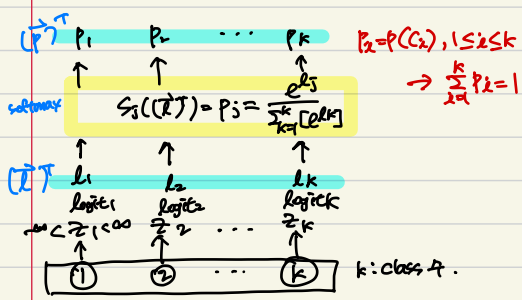 (p⃗)ᵀ p₁ p₂ ... pₖ pᵢ=p(Cᵢ), 1≤i≤k
→ Σᵢ₌₁ᵏ pᵢ=1
softmax Sⱼ((l⃗)ᵀ)=pⱼ= e^{lⱼ} / Σₖ₌₁ᵏ[e^{lₖ}]
(l⃗)ᵀ l₁ l₂ lₖ
logit₁ logit₂ logitₖ
-∞<Z₁<∞ Z₂ ... Zₖ
1 2 ... k k: class 수.